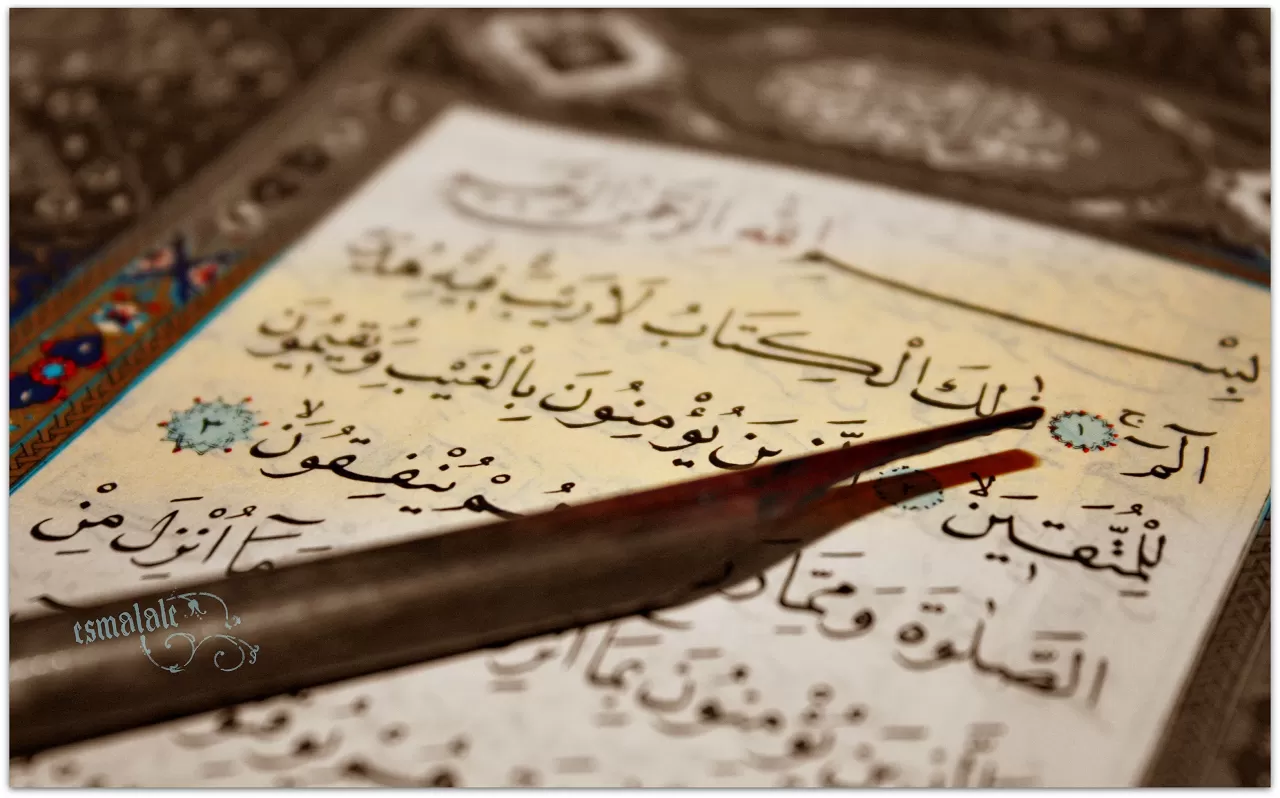 بِسْمِ اللهِ الرَّحْمٰنِ الرَّحِيمِ
الٓمٓ ۚ ١ ذٰلِكَ الْكِتَابُ لَا رَيْبَ ۛ فِيهِ ۛ هُدًى
لِلْمُتَّقِينَ ۙ ٢ يُؤْمِنُونَ بِالْغَيْبِ وَيُقِيمُونَ
الصَّلٰوةَ وَمِمَّا يُنْفِقُونَ ۙ ٣
يُؤْمِنُونَ بِمَا أُنْزِلَ مَا أُنْزِلَ مِنْ
esmalale